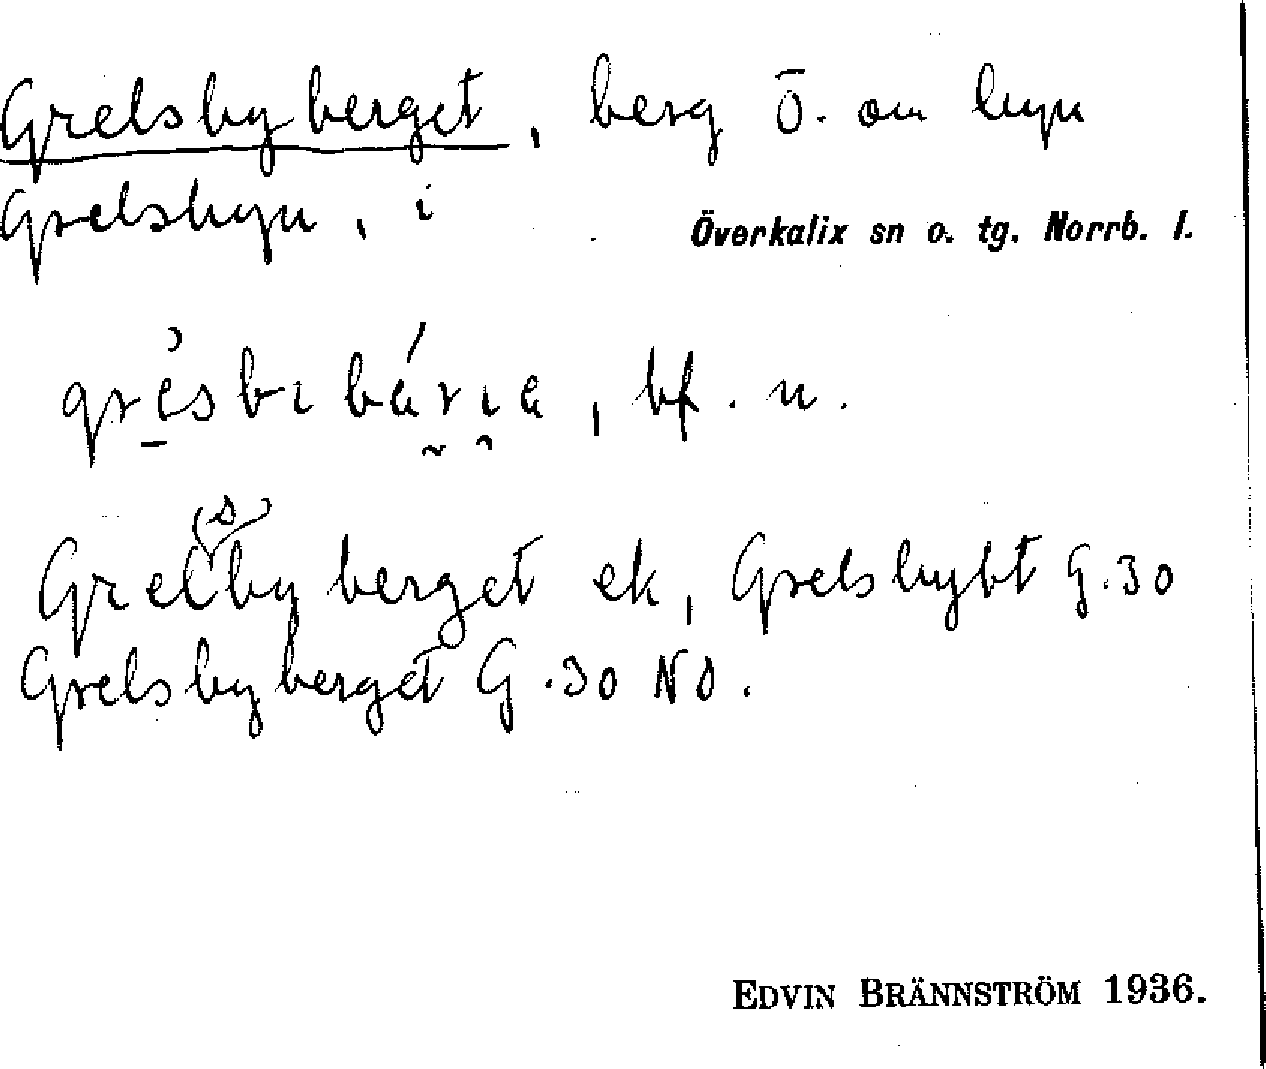 Grelsbyberget, berg Ö. om byn
Grelsbyn, i Överkalix sn o. tg. Norrb. l.
bf. n.
Grel(s)byberget ek, Grelsbybt G.30
Grelsbyberget G.30 NO.
EDVIN BRÄNNSTRÖM 1936.